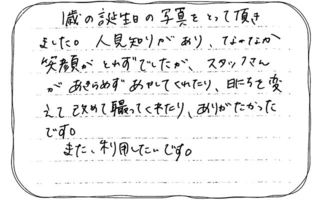 1歳の誕生日の写真をとって頂き
ました。人見知りがあり、なかなか
笑顔がとれずでしたが、スタッフさん
があきらめずあやしてくれたり、日にちを変
えて改めて撮ってくれたり、ありがたかった
です。
また、利用したいです。